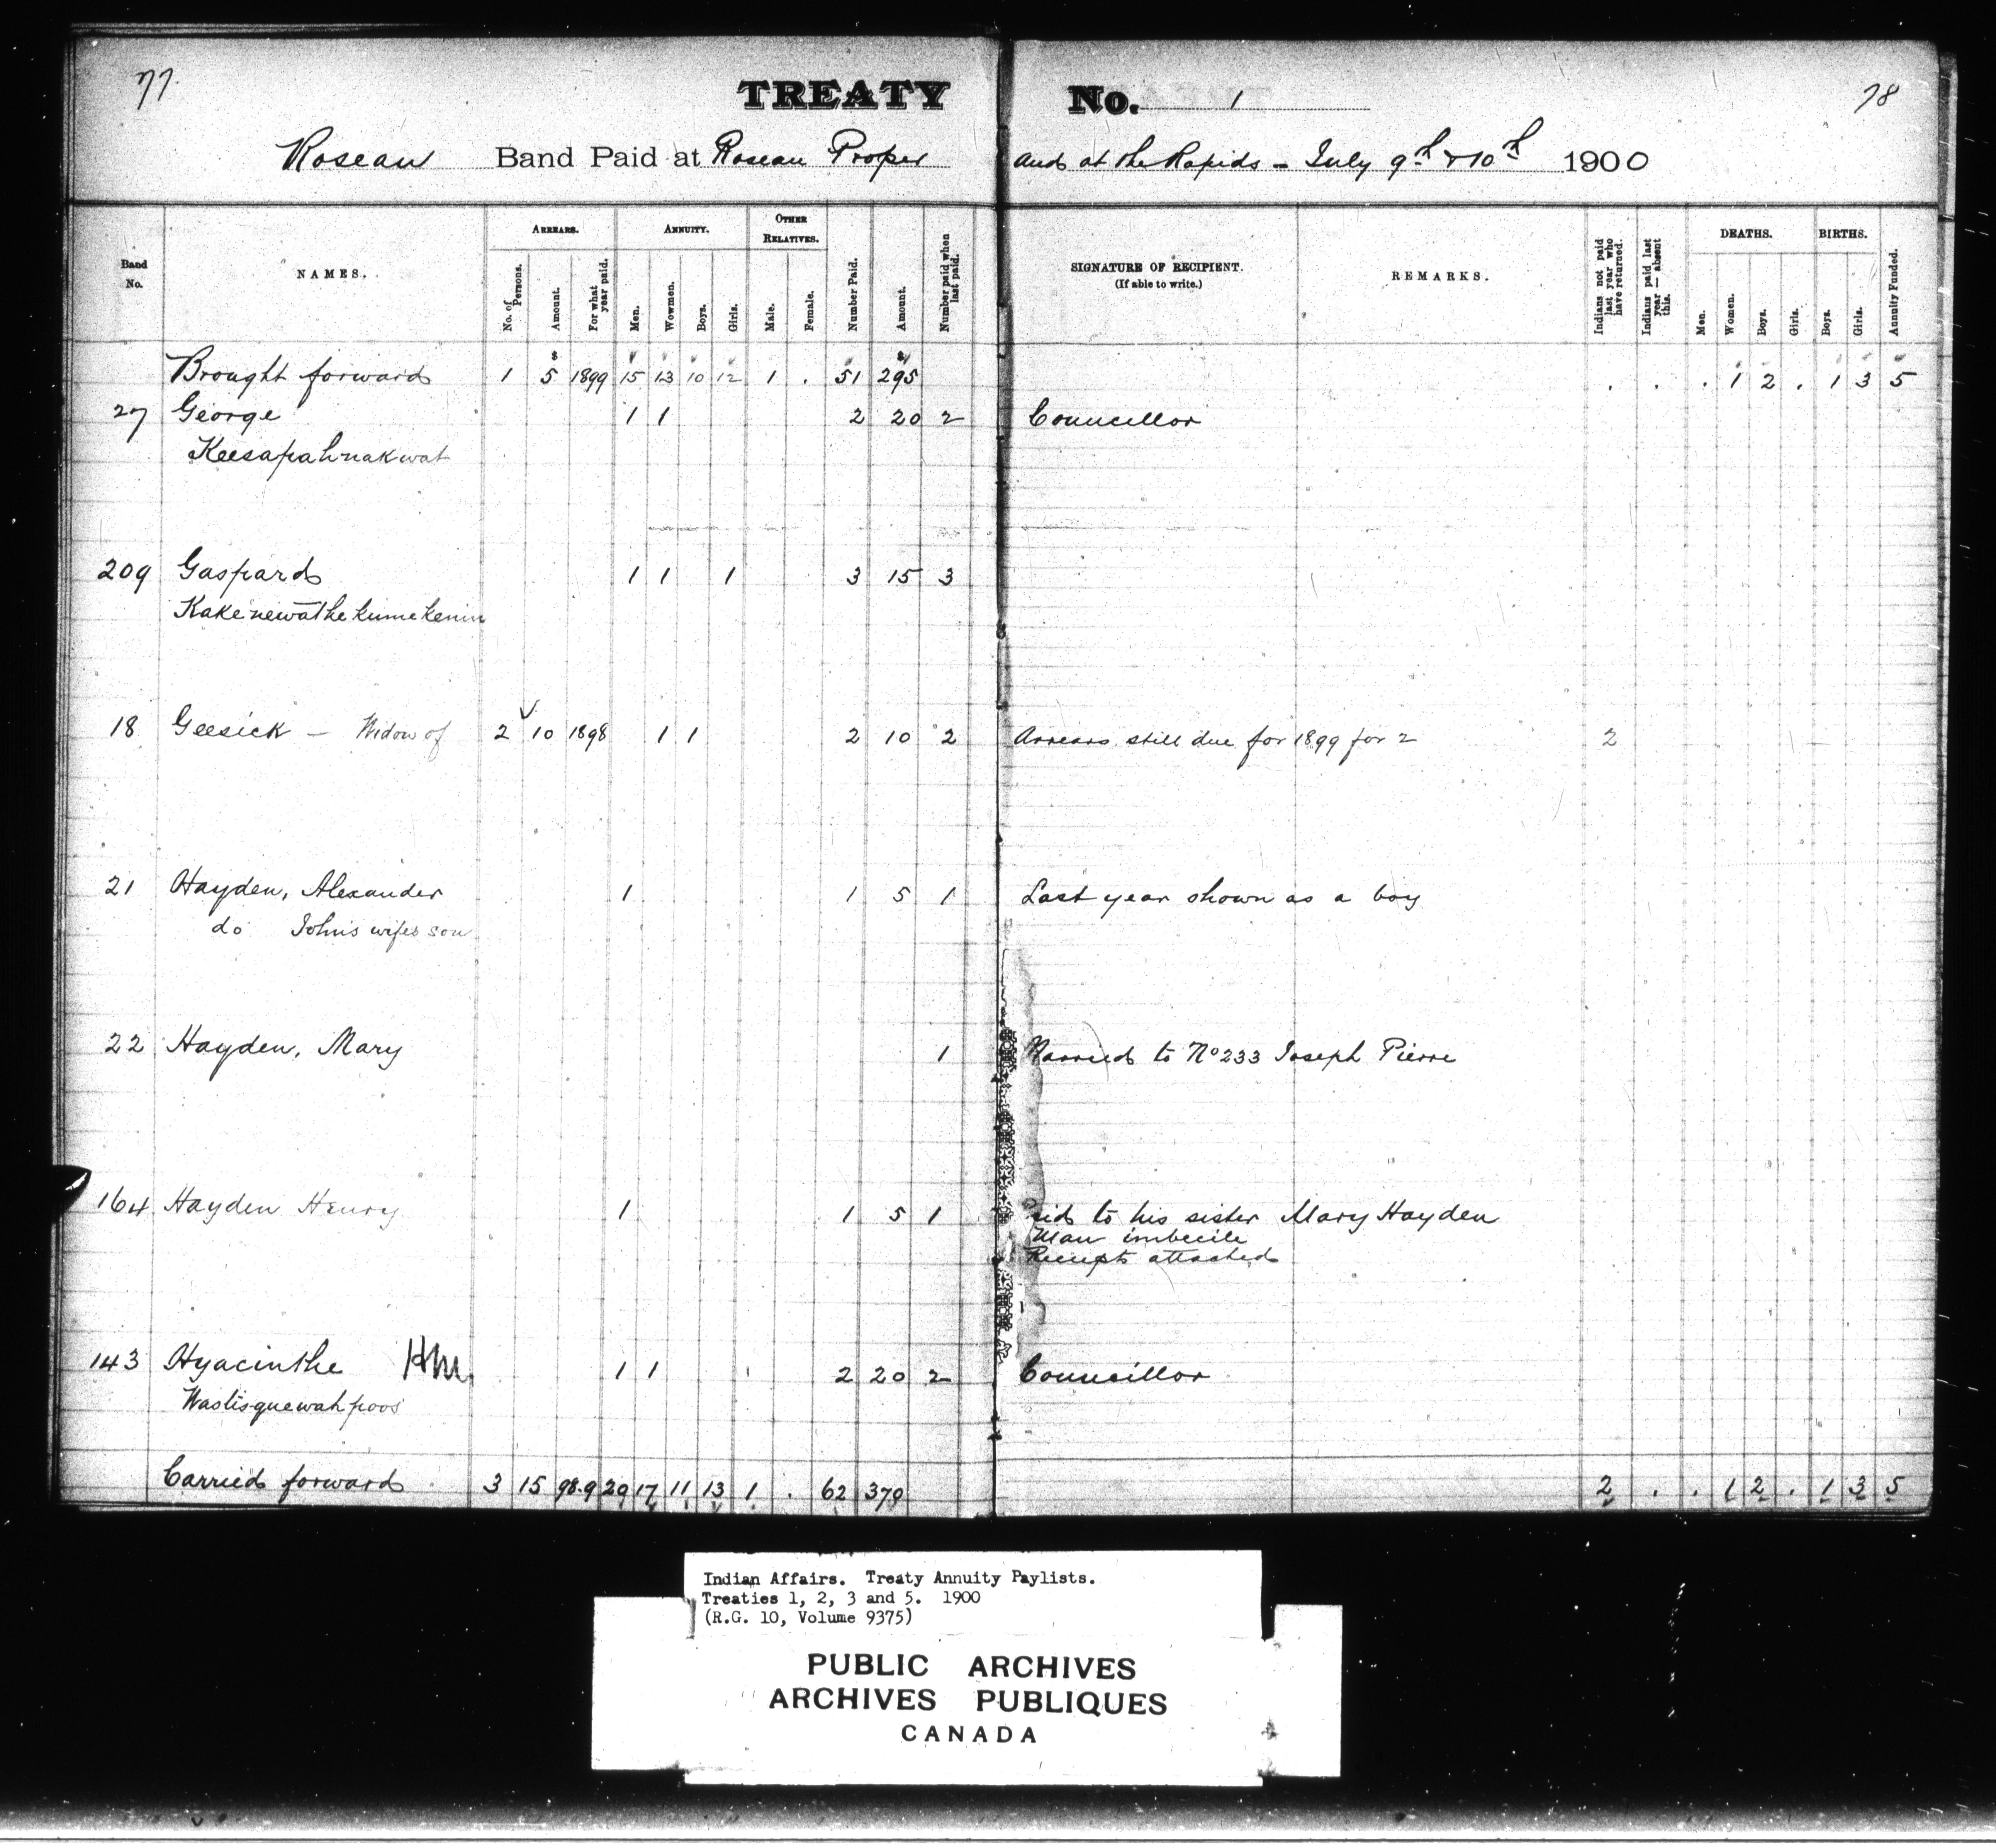 77.
TREATY No. 1
78
Roseau Band Paid at Roseau Proper and at the Rapids - July 9th & 10th 1900
Band No.
NAMES.
ARREARS.
No. of Persons.
Amount.
For what year paid.
ANNUITY.
Men.
Wowmen.
Boys.
Girls.
OTHER RELATIVES.
Male.
Female.
Number Paid.
Amount.
Number paid when last paid.
SIGNATURE OF RECIPIENT.
(If able to write.)
REMARKS.
Indians not paid last year who have returned.
Indians paid last year — absent this.
DEATHS.
Men.
Women.
Boys.
Girls.
BIRTHS.
Boys.
Girls.
Annuity Funded.
Brought forward 1 5 1899 15 13 10 12 1 . 51 295 . . . 1 2 . 1 3 5
27 George 1 1 2 20 2 Councillor
Keesapahnakwat
209 Gaspard 1 1 1 3 15 3
Kakenewathekumekenin
18 Geesick - Widow of 2 10 1898 1 1 2 10 2 Arrears still due for 1899 for 2 2
21 Hayden, Alexander 1 1 5 1 Last year shown as a boy
do John's wifes son
22 Hayden, Mary 1 Married to No 233 Joseph Pierre
164 Hayden Henry 1 1 5 1 Paid to his sister Mary Hayden
Man imbecile
Receipts attached
143 Hyacinthe 1 1 2 20 2 Councillor
Wastisquewahpoos
Carried forward 3 15 98.9 20 17 11 13 1 . 62 370 2 . . 1 2 . 1 3 5
Indian Affairs. Treaty Annuity Paylists.
Treaties 1, 2, 3 and 5. 1900
(R.G. 10, Volume 9375)
PUBLIC ARCHIVES
ARCHIVES PUBLIQUES
CANADA